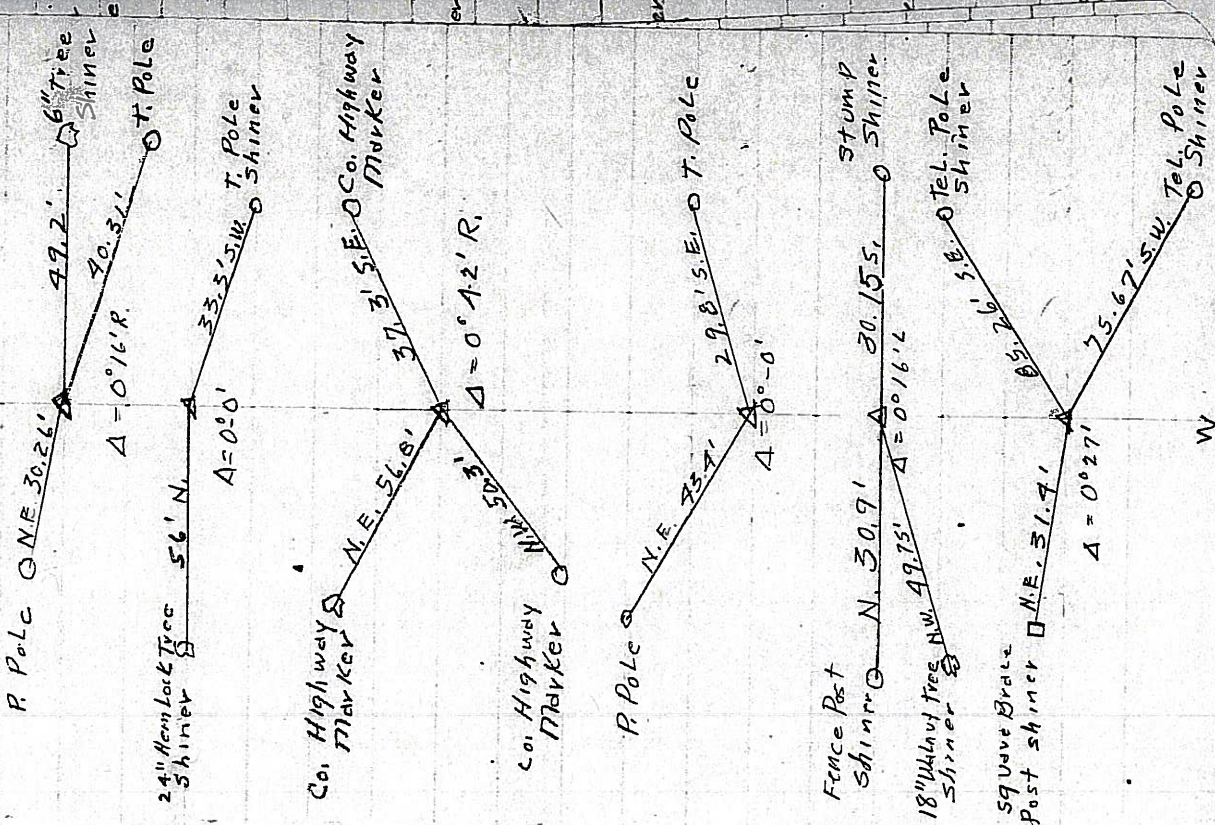 P. Pole
N.E. 30.26'
49.2'
6" Tree
Shiner
40.31'
T. Pole
Δ = 0°16' R.
24" HemLock Tree
Shiner
56' N.
33.5' S.W.
T. Pole
Shiner
Δ = 0°-0'
Co. Highway
Marker
N.E. 56.8'
37.3' S.E.
Co. Highway
Marker
Δ = 0° 4.2' R.
Co. Highway
Marker
N.W. 50.3'
P. Pole
N.E. 43.4'
29.8' S.E.
T. Pole
Δ = 0°-0'
Fence Post
Shiner
N. 30.9'
30.15 S.
Stump
Shiner
Δ = 0°16' L
18" Walnut Tree
Shiner
N.W. 49.75'
Tel. Pole
Shiner
S.E.
Square
Post Shiner
N.E. 31.4'
75.67' S.W.
Tel. Pole
Shiner
Δ = 0°27'
W